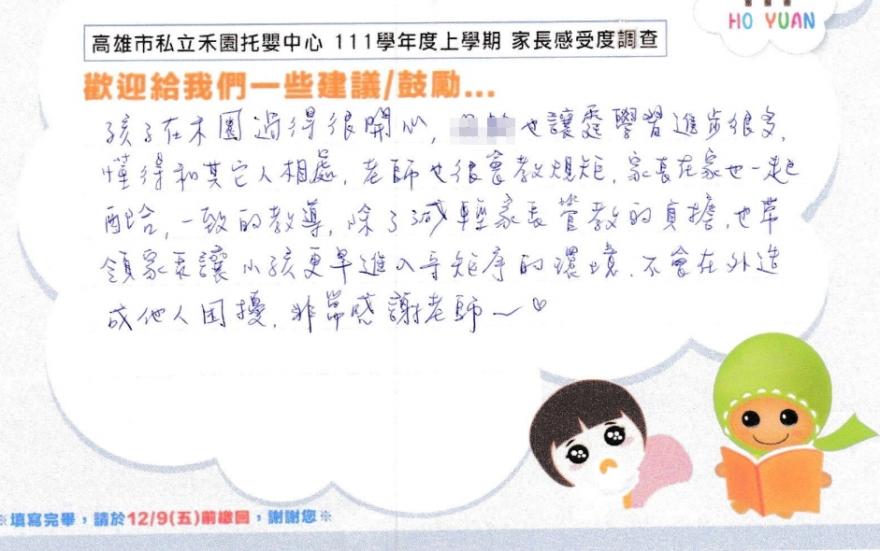 HO YUAN
高雄市私立禾園托嬰中心 111學年度上學期 家長感受度調查
歡迎給我們一些建議/鼓勵...
孩子在禾園過得很開心, 也讓霆學習進步很多,
懂得和其它人相處, 老師也很會教規矩, 家長在家也一起
配合, 一致的教導, 除了減輕家長管教的負擔, 也帶
領家長讓小孩更早進入守矩序的環境, 不會在外造
成他人困擾, 非常感謝老師~♡
※填寫完畢,請於12/9(五)前繳回,謝謝您※